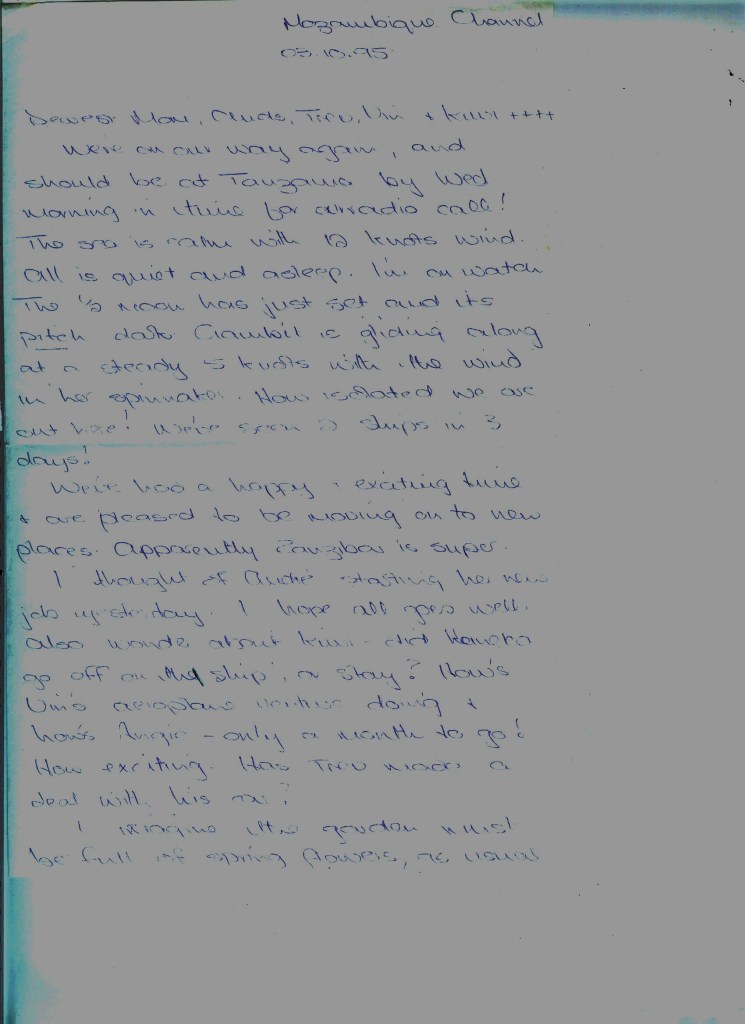 Mozambique Channel
03.10.95
Dearest Mom, Trev, Vin + Kim ++++
We're on our way again, and
should be at Tanzania by Wed
morning in time for our radio call!
The sea is calm with 12 knots wind.
All is quiet and asleep. I'm on watch
The ½ moon has just set and its
pitch dark. is gliding along
at a steady 5 knots with the wind
in her spinnaker. How isolated we are
out here! We've seen 2 ships in 3
days!
We've had a happy + exciting time
+ are pleased to be moving on to new
places. Apparently Zanzibar is super.
I thought of starting her new
job yesterday. I hope all goes well.
Also wonder about Kim - did
go off on the ship, or stay? How's
Vin's aeroplane venture doing +
how's Angie - only a month to go!
How exciting. Has Trev made a
deal with his
I imagine the garden must
be full of spring flowers, as usual